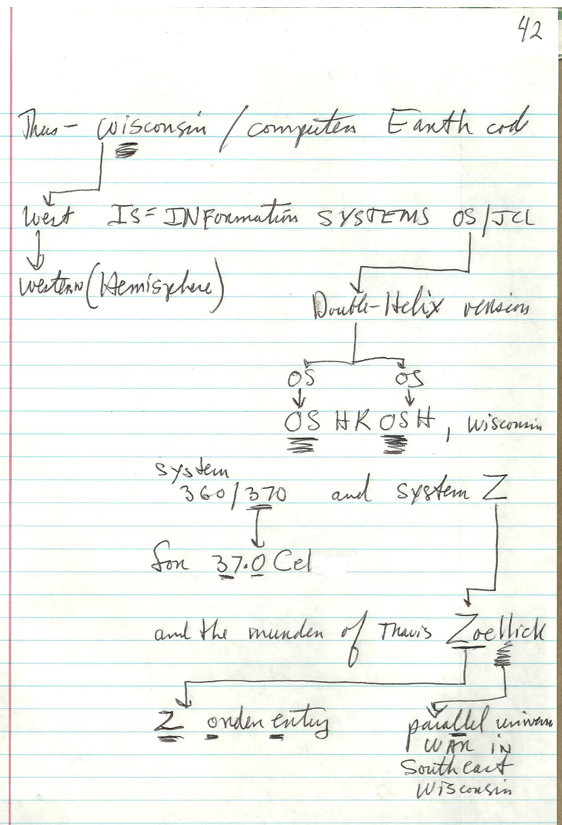 42
Thus - Wisconsin / computer Earth cod
West IS = INFormation SYSTEMS OS/JCL
Western (Hemisphere)
Double-Helix version
OS OS
OS HK OSH, Wisconsin
System
360/370 and system Z
for 37.0 Cel
and the murder of Travis Zoellick
Z order entry parallel univers
WAR IN
Southeast
Wisconsin